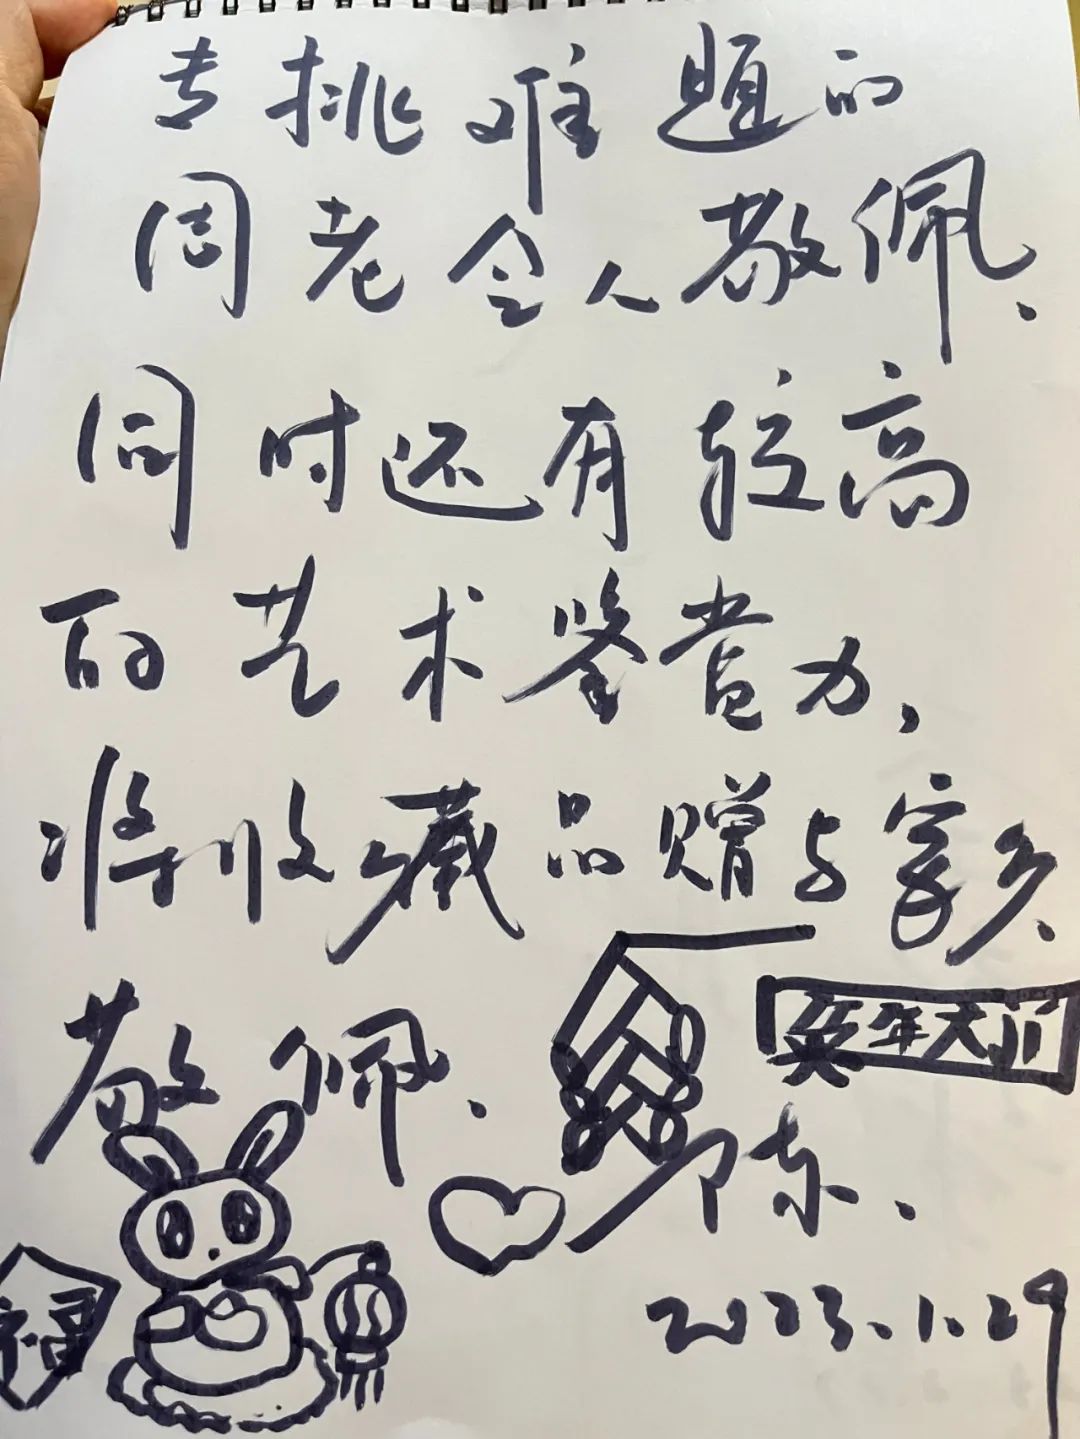 专挑难题的
周老令人敬佩、
同时还有较高
的艺术鉴赏力,
将收藏品赠与家乡、
敬佩、
年大
东、
福
2023.1.29